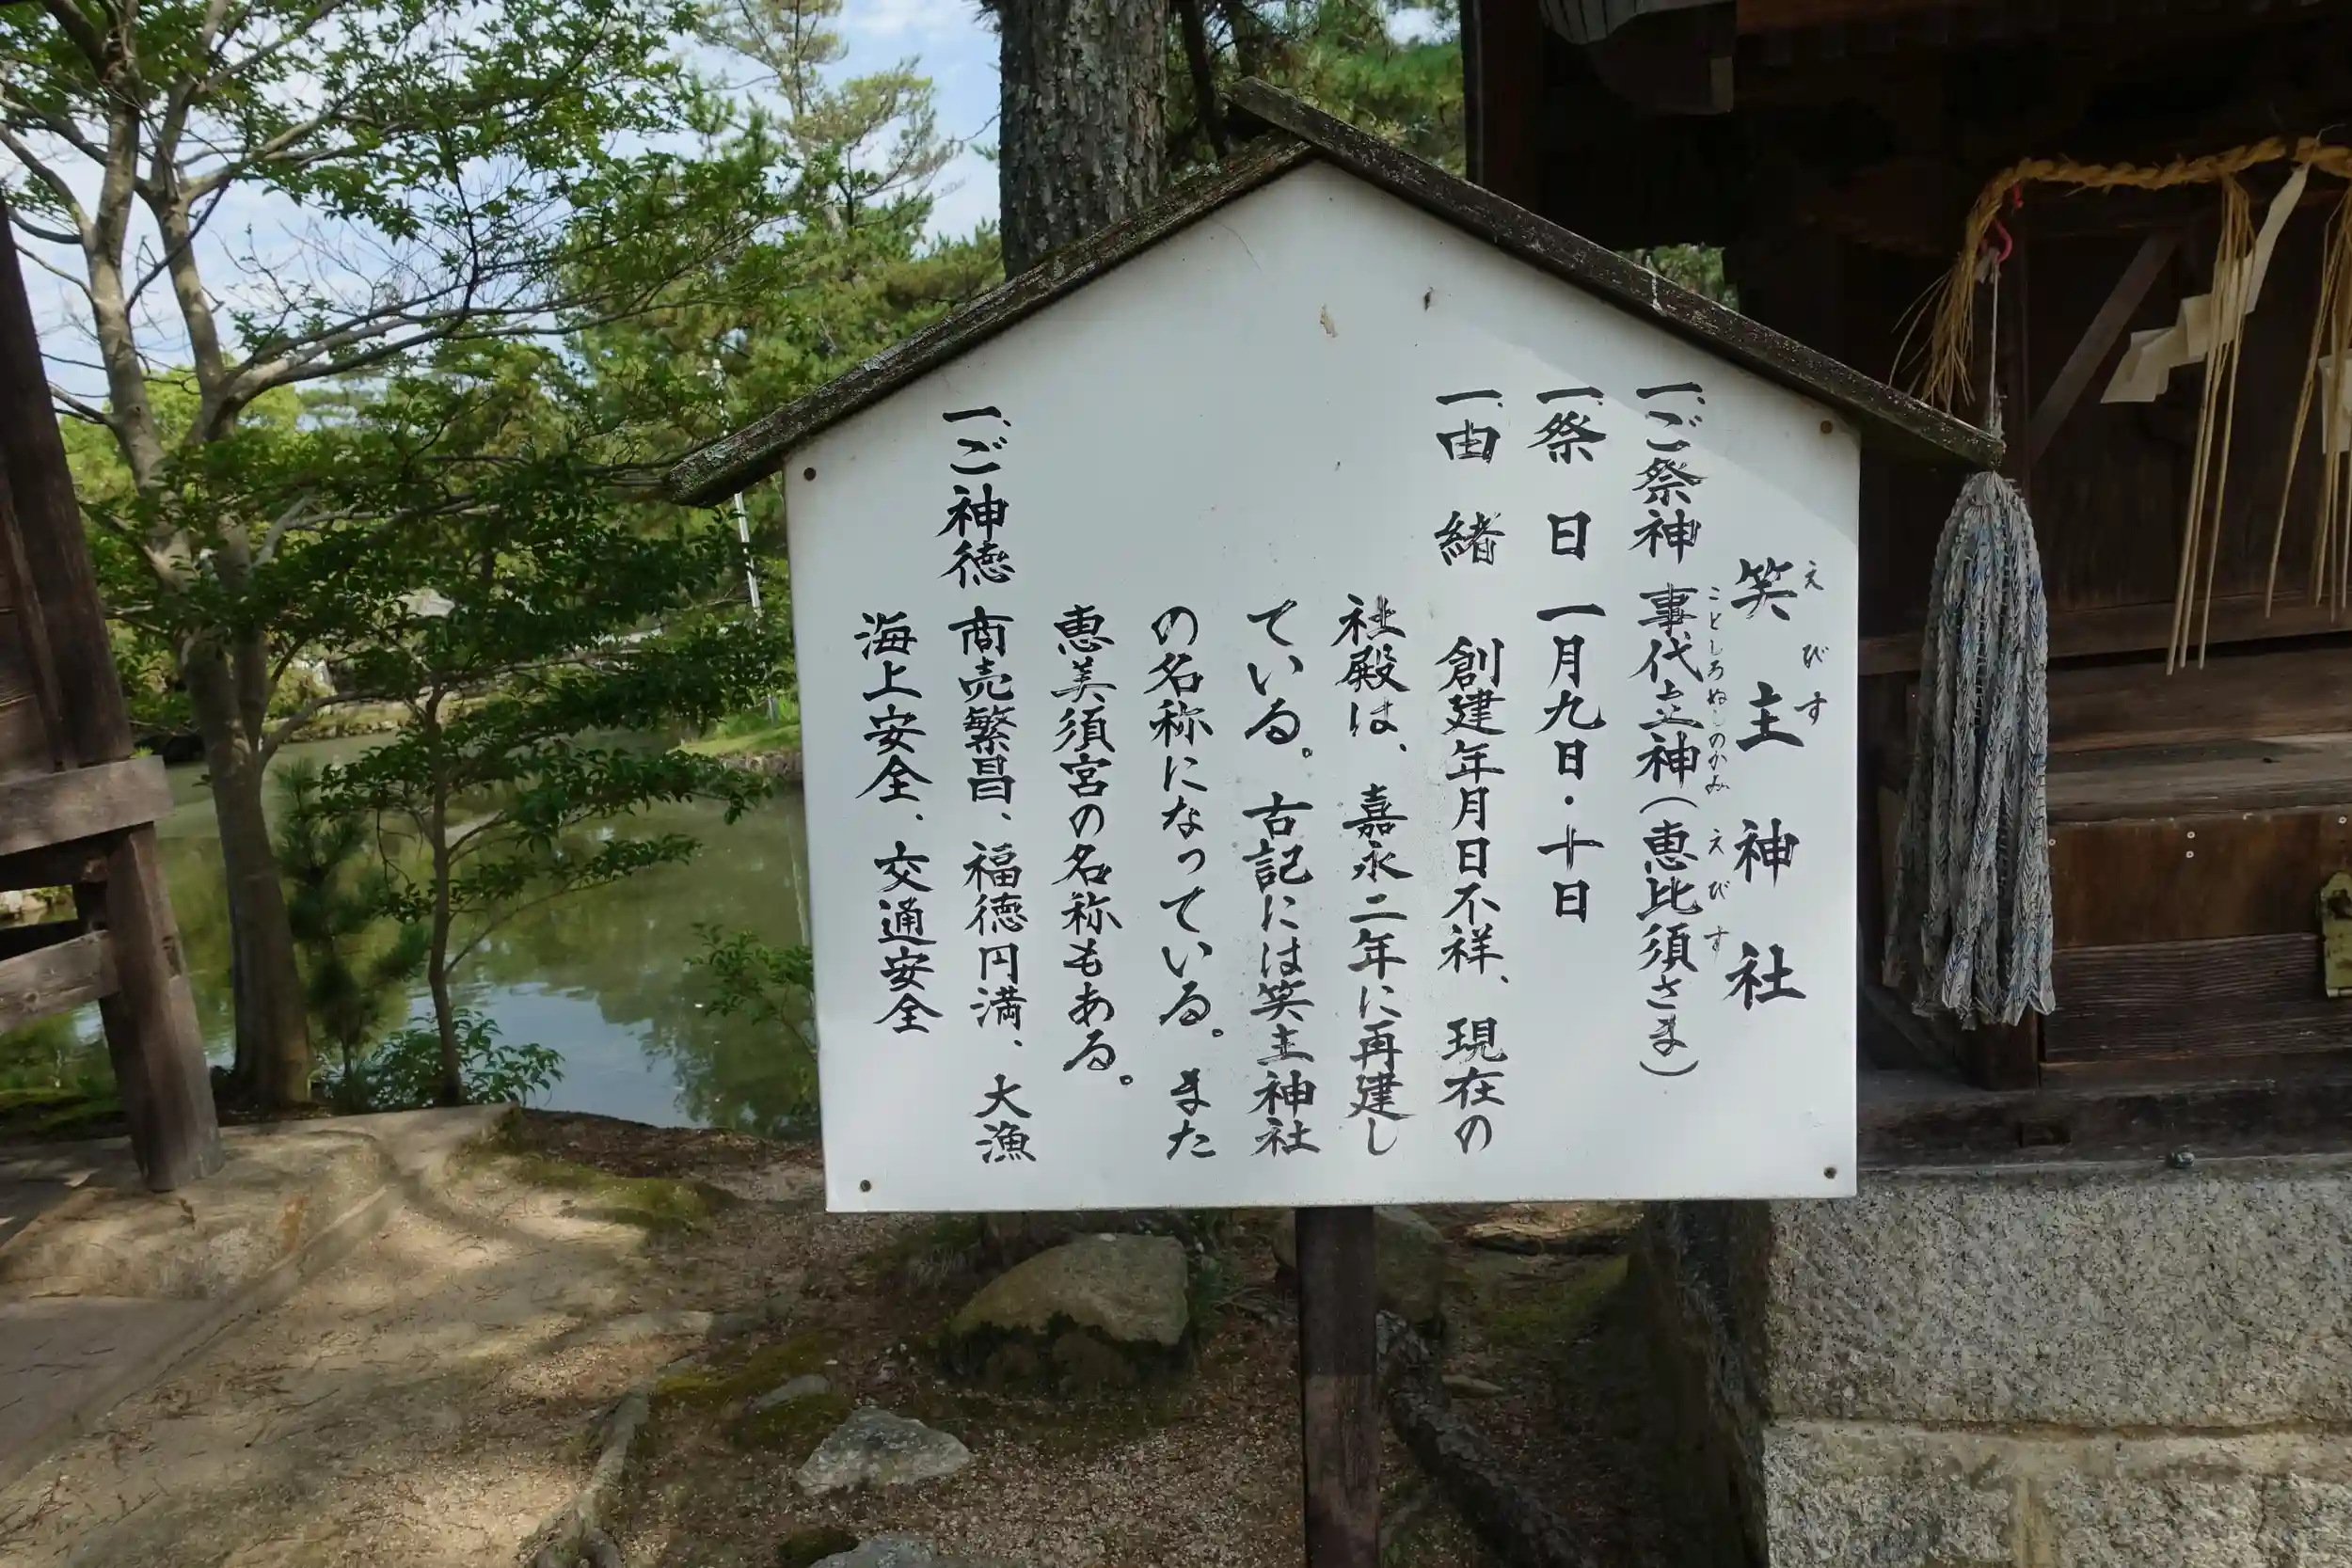 笑主神社
えびす
一、ご祭神 事代主神(恵比須さま)
ことしろぬしのかみ えびす
一、祭 日 一月九日・十日
一、由 緒 創建年月日不祥、現在の
社殿は、嘉永二年に再建し
ている。古記には笑主神社
の名称になっている。また
恵美須宮の名称もある。
一、ご神徳 商売繁昌、福徳円満、大漁
海上安全、交通安全